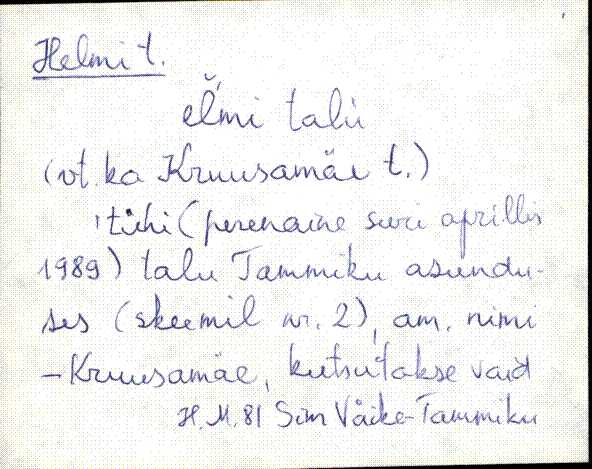 Helmi t.
eĺmi talu
(vt. ka Kruusamäe t.)
tühi (perenaine suri aprillis
1989) talu Tammiku asundu-
ses (skeemil nr. 2), am. nimi
- Kruusamäe, kutsutakse vaid
H.M. 81 Sim Väike-Tammiku